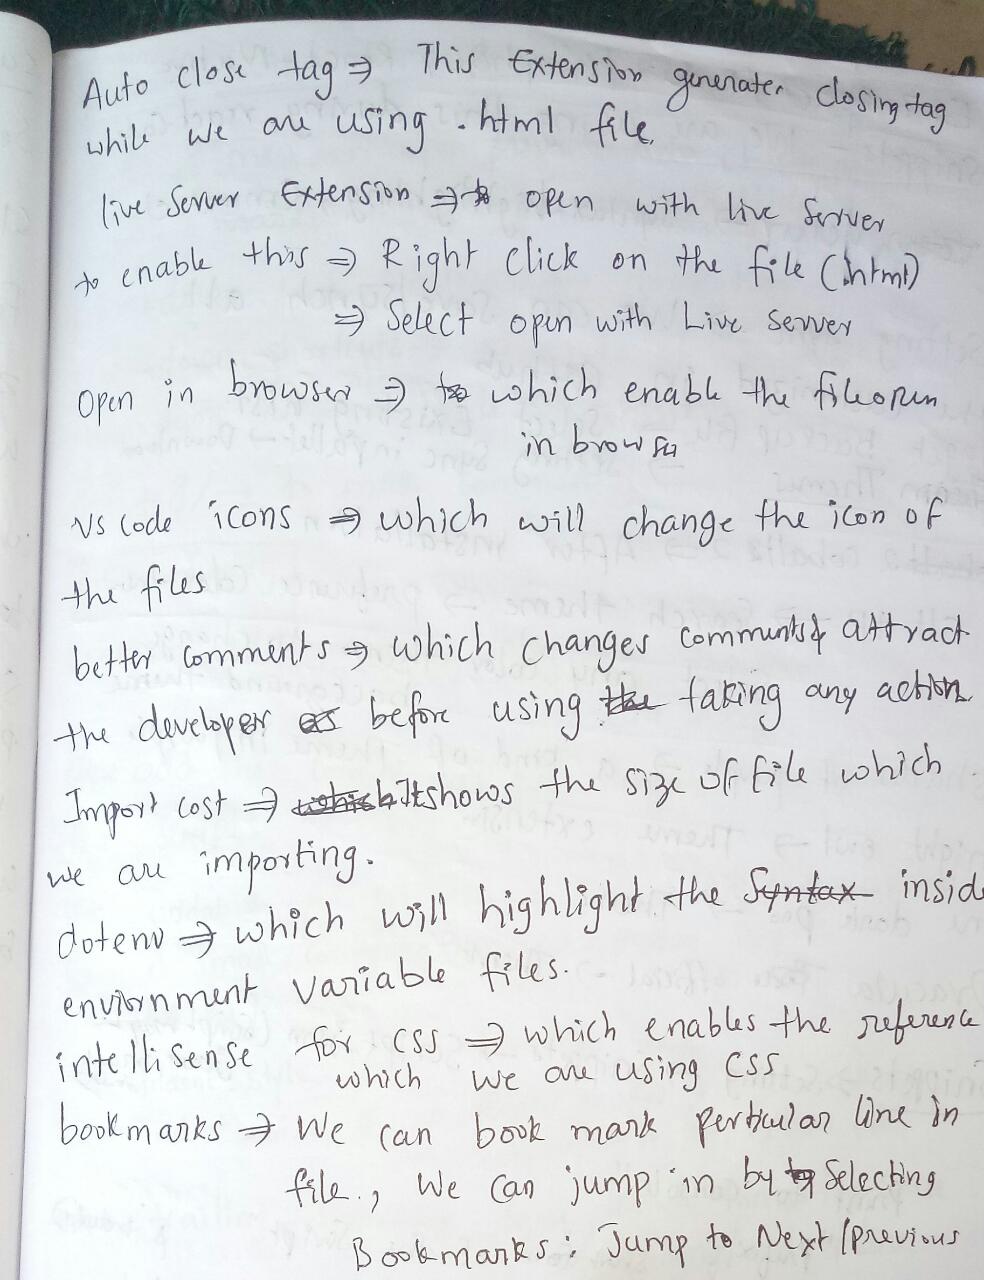 Auto close tag ⇒ This Extension generates closing tag
while we are using .html file.
live Server Extension ⇒ open with live Server
to enable this ⇒ Right click on the file (.html)
⇒ Select open with Live Server
Open in browser ⇒ which enable the file open
in browser
VS Code icons ⇒ which will change the icon of
the files
better comments ⇒ which changes comments & attract
the developer before using taking any action
Import cost ⇒ It shows the size of file which
we are importing.
dotenv ⇒ which will highlight the Syntax insid
enviornment variable files.
intellisense for CSS ⇒ which enables the reference
which we are using CSS
bookmarks ⇒ We can book mark perticular line in
file., We can jump in by Selecting
Bookmarks: Jump to Next/previous